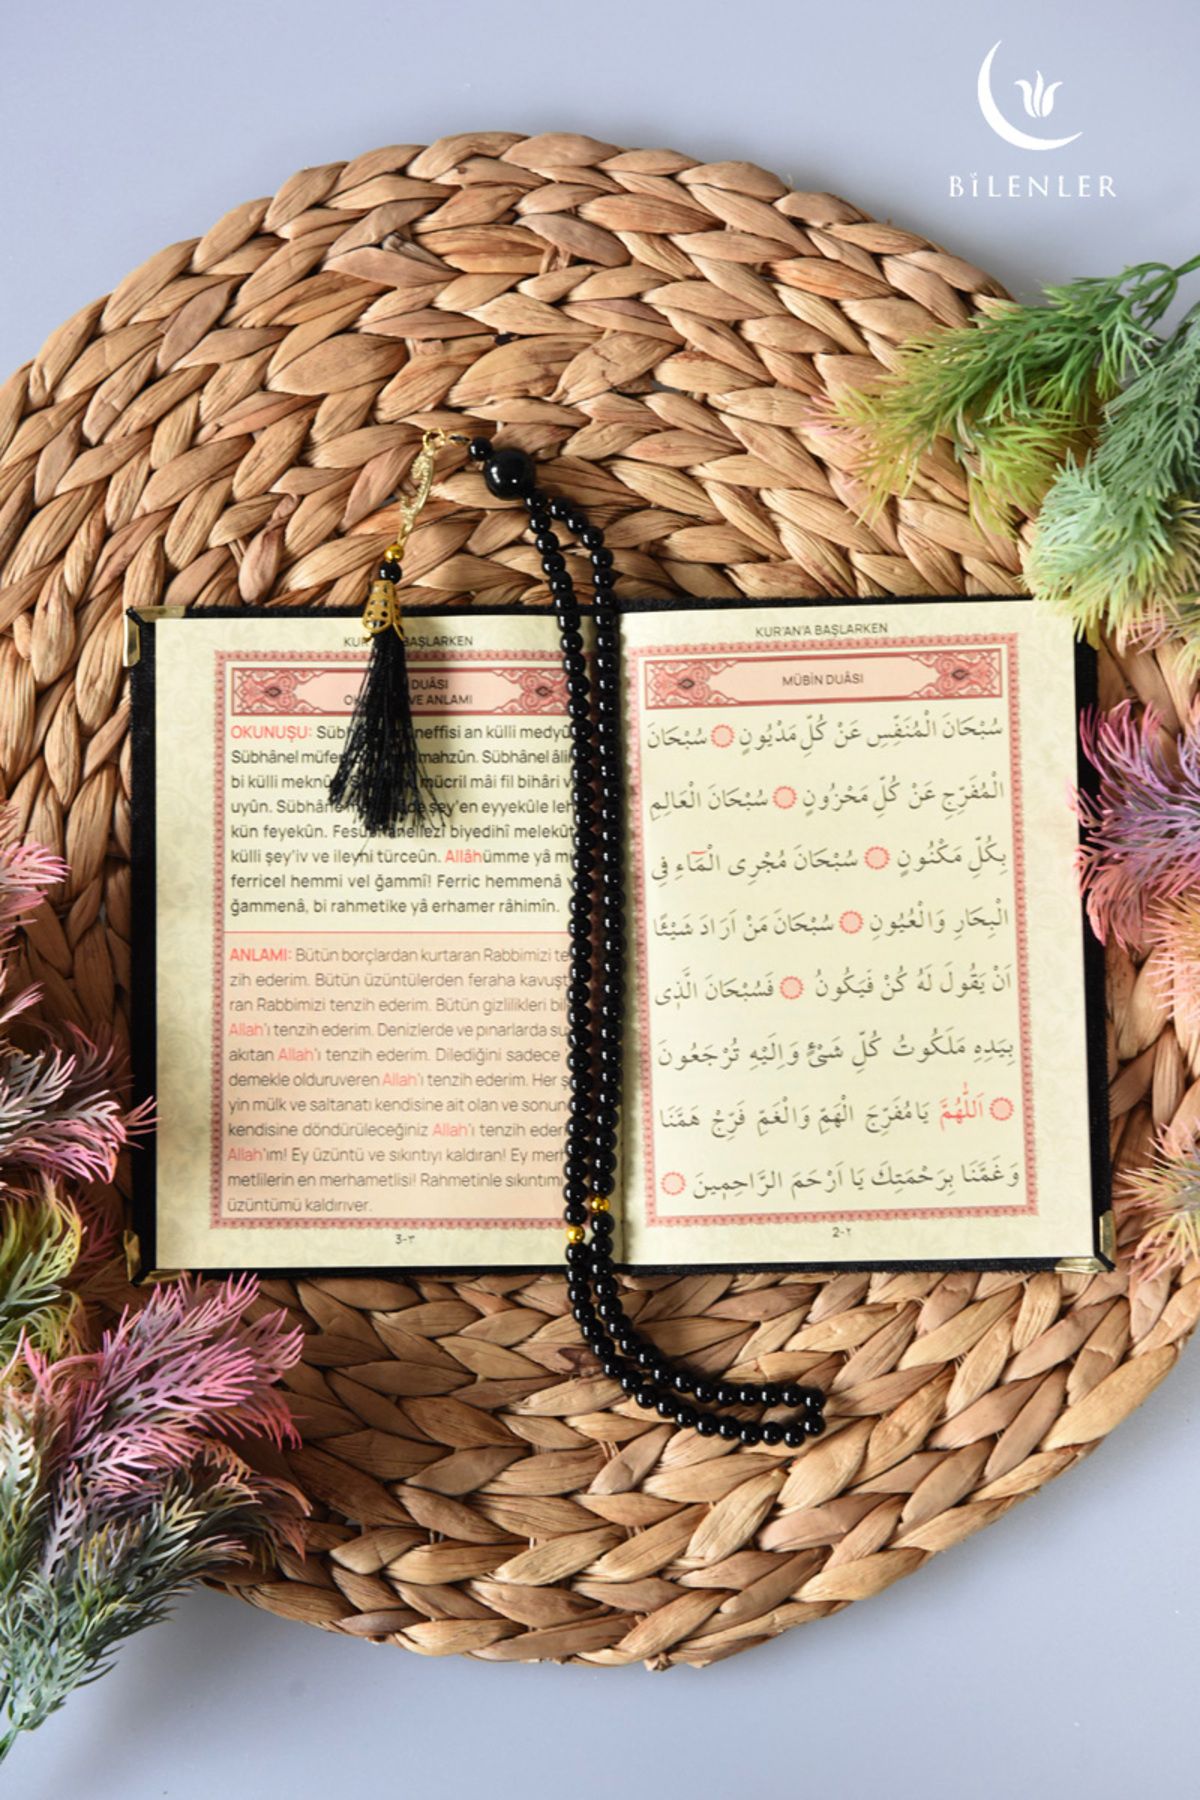 BİLENLER
KUR'AN'A BAŞLARKEN
MÜBİN DUÂSI
سُبْحَانَ الْمُنَفِّسِ عَنْ كُلِّ مَدْيُونٍ سُبْحَانَ
الْمُفَرِّجِ عَنْ كُلِّ مَحْزُونٍ سُبْحَانَ الْعَالِمِ
بِكُلِّ مَكْنُونٍ سُبْحَانَ مُجْرِى الْمَٓاءِ فِى
الْبِحَارِ وَالْعُيُونِ سُبْحَانَ مَنْ اَرَادَ شَيْئًا
اَنْ يَقُولَ لَهُ كُنْ فَيَكُونُ فَسُبْحَانَ الَّذٖى
بِيَدِهِ مَلَكُوتُ كُلِّ شَىْءٍ وَاِلَيْهِ تُرْجَعُونَ
اَللّٰهُمَّ يَامُفَرِّجَ الْهَمِّ وَالْغَمِّ فَرِّجْ هَمَّنَا
وَغَمَّنَا بِرَحْمَتِكَ يَا اَرْحَمَ الرَّاحِمٖينَ
2-٢
BAŞLARKEN
DUÂSI
VE ANLAMI
OKUNUŞU: neffisi an külli
Sübhânel mahzûn. Sübhânel
bi külli mücril mâi fil bihâri
uyûn. şey'en eyyekûle
kün feyekûn. biyedihî
külli şey'iv ve ileyhi türceûn. Allâhümme yâ
ferricel hemmi vel ğammî! Ferric hemmenâ
ğammenâ, bi rahmetike yâ erhamer râhimîn.
ANLAMI: Bütün borçlardan kurtaran Rabbimizi
zih ederim. Bütün üzüntülerden feraha
ran Rabbimizi tenzih ederim. Bütün gizlilikleri
Allah'ı tenzih ederim. Denizlerde ve pınarlarda
akıtan Allah'ı tenzih ederim. Dilediğini sadece
demekle olduruveren Allah'ı tenzih ederim. Her
yin mülk ve saltanatı kendisine ait olan ve
kendisine döndürüleceğiniz Allah'ı tenzih
Allah'ım! Ey üzüntü ve sıkıntıyı kaldıran! Ey
metlilerin en merhametlisi! Rahmetinle
üzüntümü kaldırıver.
3-٣